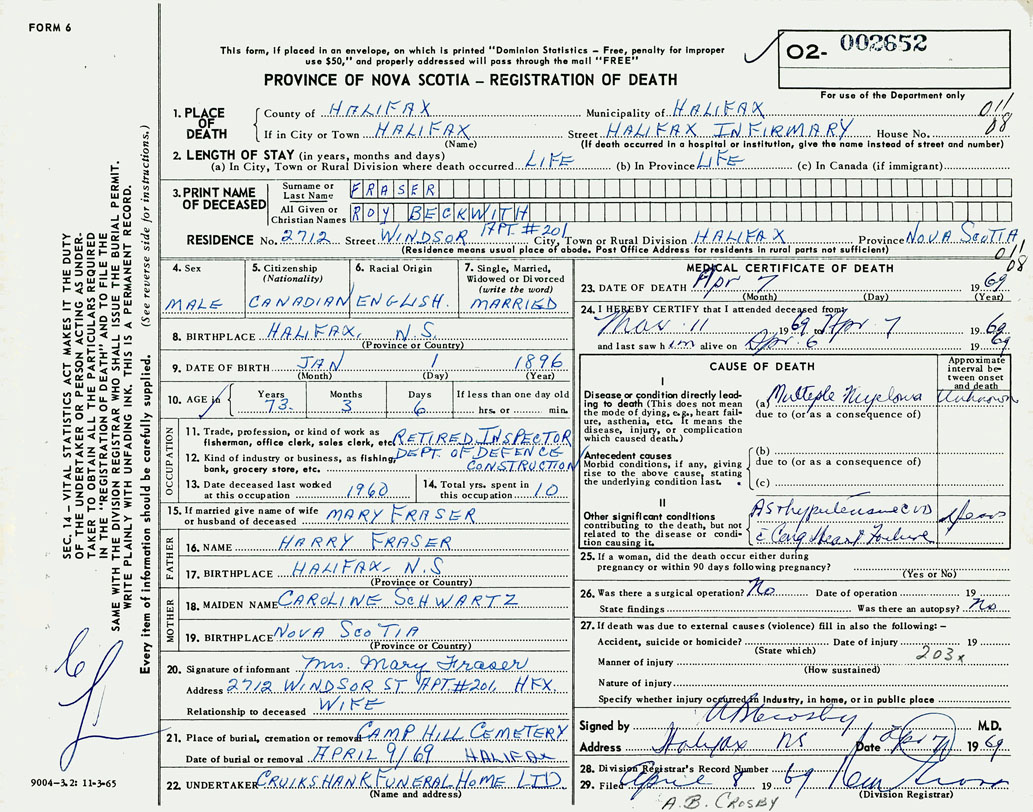 FORM 6
This form, if placed in an envelope, on which is printed "Dominion Statistics – Free, penalty for improper
use $50," and properly addressed will pass through the mail "FREE"
PROVINCE OF NOVA SCOTIA – REGISTRATION OF DEATH
O2- 002652
For use of the Department only
011
08
1. PLACE OF DEATH
County of HALIFAX Municipality of HALIFAX
If in City or Town HALIFAX Street HALIFAX INFIRMARY House No.
(Name) (If death occurred in a hospital or institution, give the name instead of street and number)
2. LENGTH OF STAY (in years, months and days)
(a) In City, Town or Rural Division where death occurred LIFE (b) In Province LIFE (c) In Canada (if immigrant)
3. PRINT NAME OF DECEASED
Surname or Last Name FRASER
All Given or Christian Names ROY BECKWITH
RESIDENCE No. 2712 Street WINDSOR APT #201 City, Town or Rural Division HALIFAX Province NOVA SCOTIA
(Residence means usual place of abode. Post Office Address for residents in rural parts not sufficient)
011
08
4. Sex MALE
5. Citizenship (Nationality) CANADIAN
6. Racial Origin ENGLISH.
7. Single, Married, Widowed or Divorced (write the word) MARRIED
8. BIRTHPLACE HALIFAX, N.S.
(Province or Country)
9. DATE OF BIRTH JAN 1 1896
(Month) (Day) (Year)
10. AGE in Years 73 Months 3 Days 6 If less than one day old hrs. or min.
OCCUPATION
11. Trade, profession, or kind of work as
fisherman, office clerk, sales clerk, etc. RETIRED INSPECTOR
12. Kind of industry or business, as fishing, DEPT. OF DEFENCE
bank, grocery store, etc. CONSTRUCTION
13. Date deceased last worked at this occupation 1960
14. Total yrs. spent in this occupation 10
15. If married give name of wife or husband of deceased MARY FRASER
FATHER
16. NAME HARRY FRASER
17. BIRTHPLACE HALIFAX, N.S
(Province or Country)
MOTHER
18. MAIDEN NAME CAROLINE SCHWARTZ
19. BIRTHPLACE NOVA SCOTIA
(Province or Country)
20. Signature of informant Mrs. Mary Fraser
Address 2712 WINDSOR ST APT #201, HFX.
Relationship to deceased WIFE
21. Place of burial, cremation or removal CAMP HILL CEMETERY
Date of burial or removal APRIL 9/69 HALIFAX
22. UNDERTAKER CRUIKSHANK FUNERAL HOME LTD
(Name and address)
MEDICAL CERTIFICATE OF DEATH
23. DATE OF DEATH Apr 7 1969
(Month) (Day) (Year)
24. I HEREBY CERTIFY that I attended deceased from
Mar 11 1969 to Apr 7 1969
and last saw him alive on Apr 6 1969
CAUSE OF DEATH
Approximate interval between onset and death
I
Disease or condition directly leading to death (This does not mean the mode of dying, e.g., heart failure, asthenia, etc. It means the disease, injury, or complication which caused death.)
(a) Multiple Myeloma Unknown
due to (or as a consequence of)
Antecedent causes
Morbid conditions, if any, giving rise to the above cause, stating the underlying condition last.
(b)
due to (or as a consequence of)
(c)
II
Other significant conditions contributing to the death, but not related to the disease or condition causing it.
Heart Failure
25. If a woman, did the death occur either during
pregnancy or within 90 days following pregnancy?
(Yes or No)
26. Was there a surgical operation? No Date of operation 19
State findings Was there an autopsy? No
27. If death was due to external causes (violence) fill in also the following: –
Accident, suicide or homicide? Date of injury 19
(State which) 203x
Manner of injury
(How sustained)
Nature of injury
Specify whether injury occurred in industry, in home, or in public place
Signed by AB Crosby M.D.
Address Halifax NS Date Apr 7 1969
28. Division Registrar's Record Number
29. Filed April 8 1969
(Division Registrar)
A.B. CROSBY
SEC. 14 – VITAL STATISTICS ACT MAKES IT THE DUTY
OF THE UNDERTAKER OR PERSON ACTING AS UNDER-
TAKER TO OBTAIN ALL THE PARTICULARS REQUIRED
IN THE "REGISTRATION OF DEATH" AND TO FILE THE
SAME WITH THE DIVISION REGISTRAR WHO SHALL ISSUE THE BURIAL PERMIT.
WRITE PLAINLY WITH UNFADING INK. THIS IS A PERMANENT RECORD.
Every item of information should be carefully supplied. (See reverse side for instructions.)
9004–3.2: 11-3-65